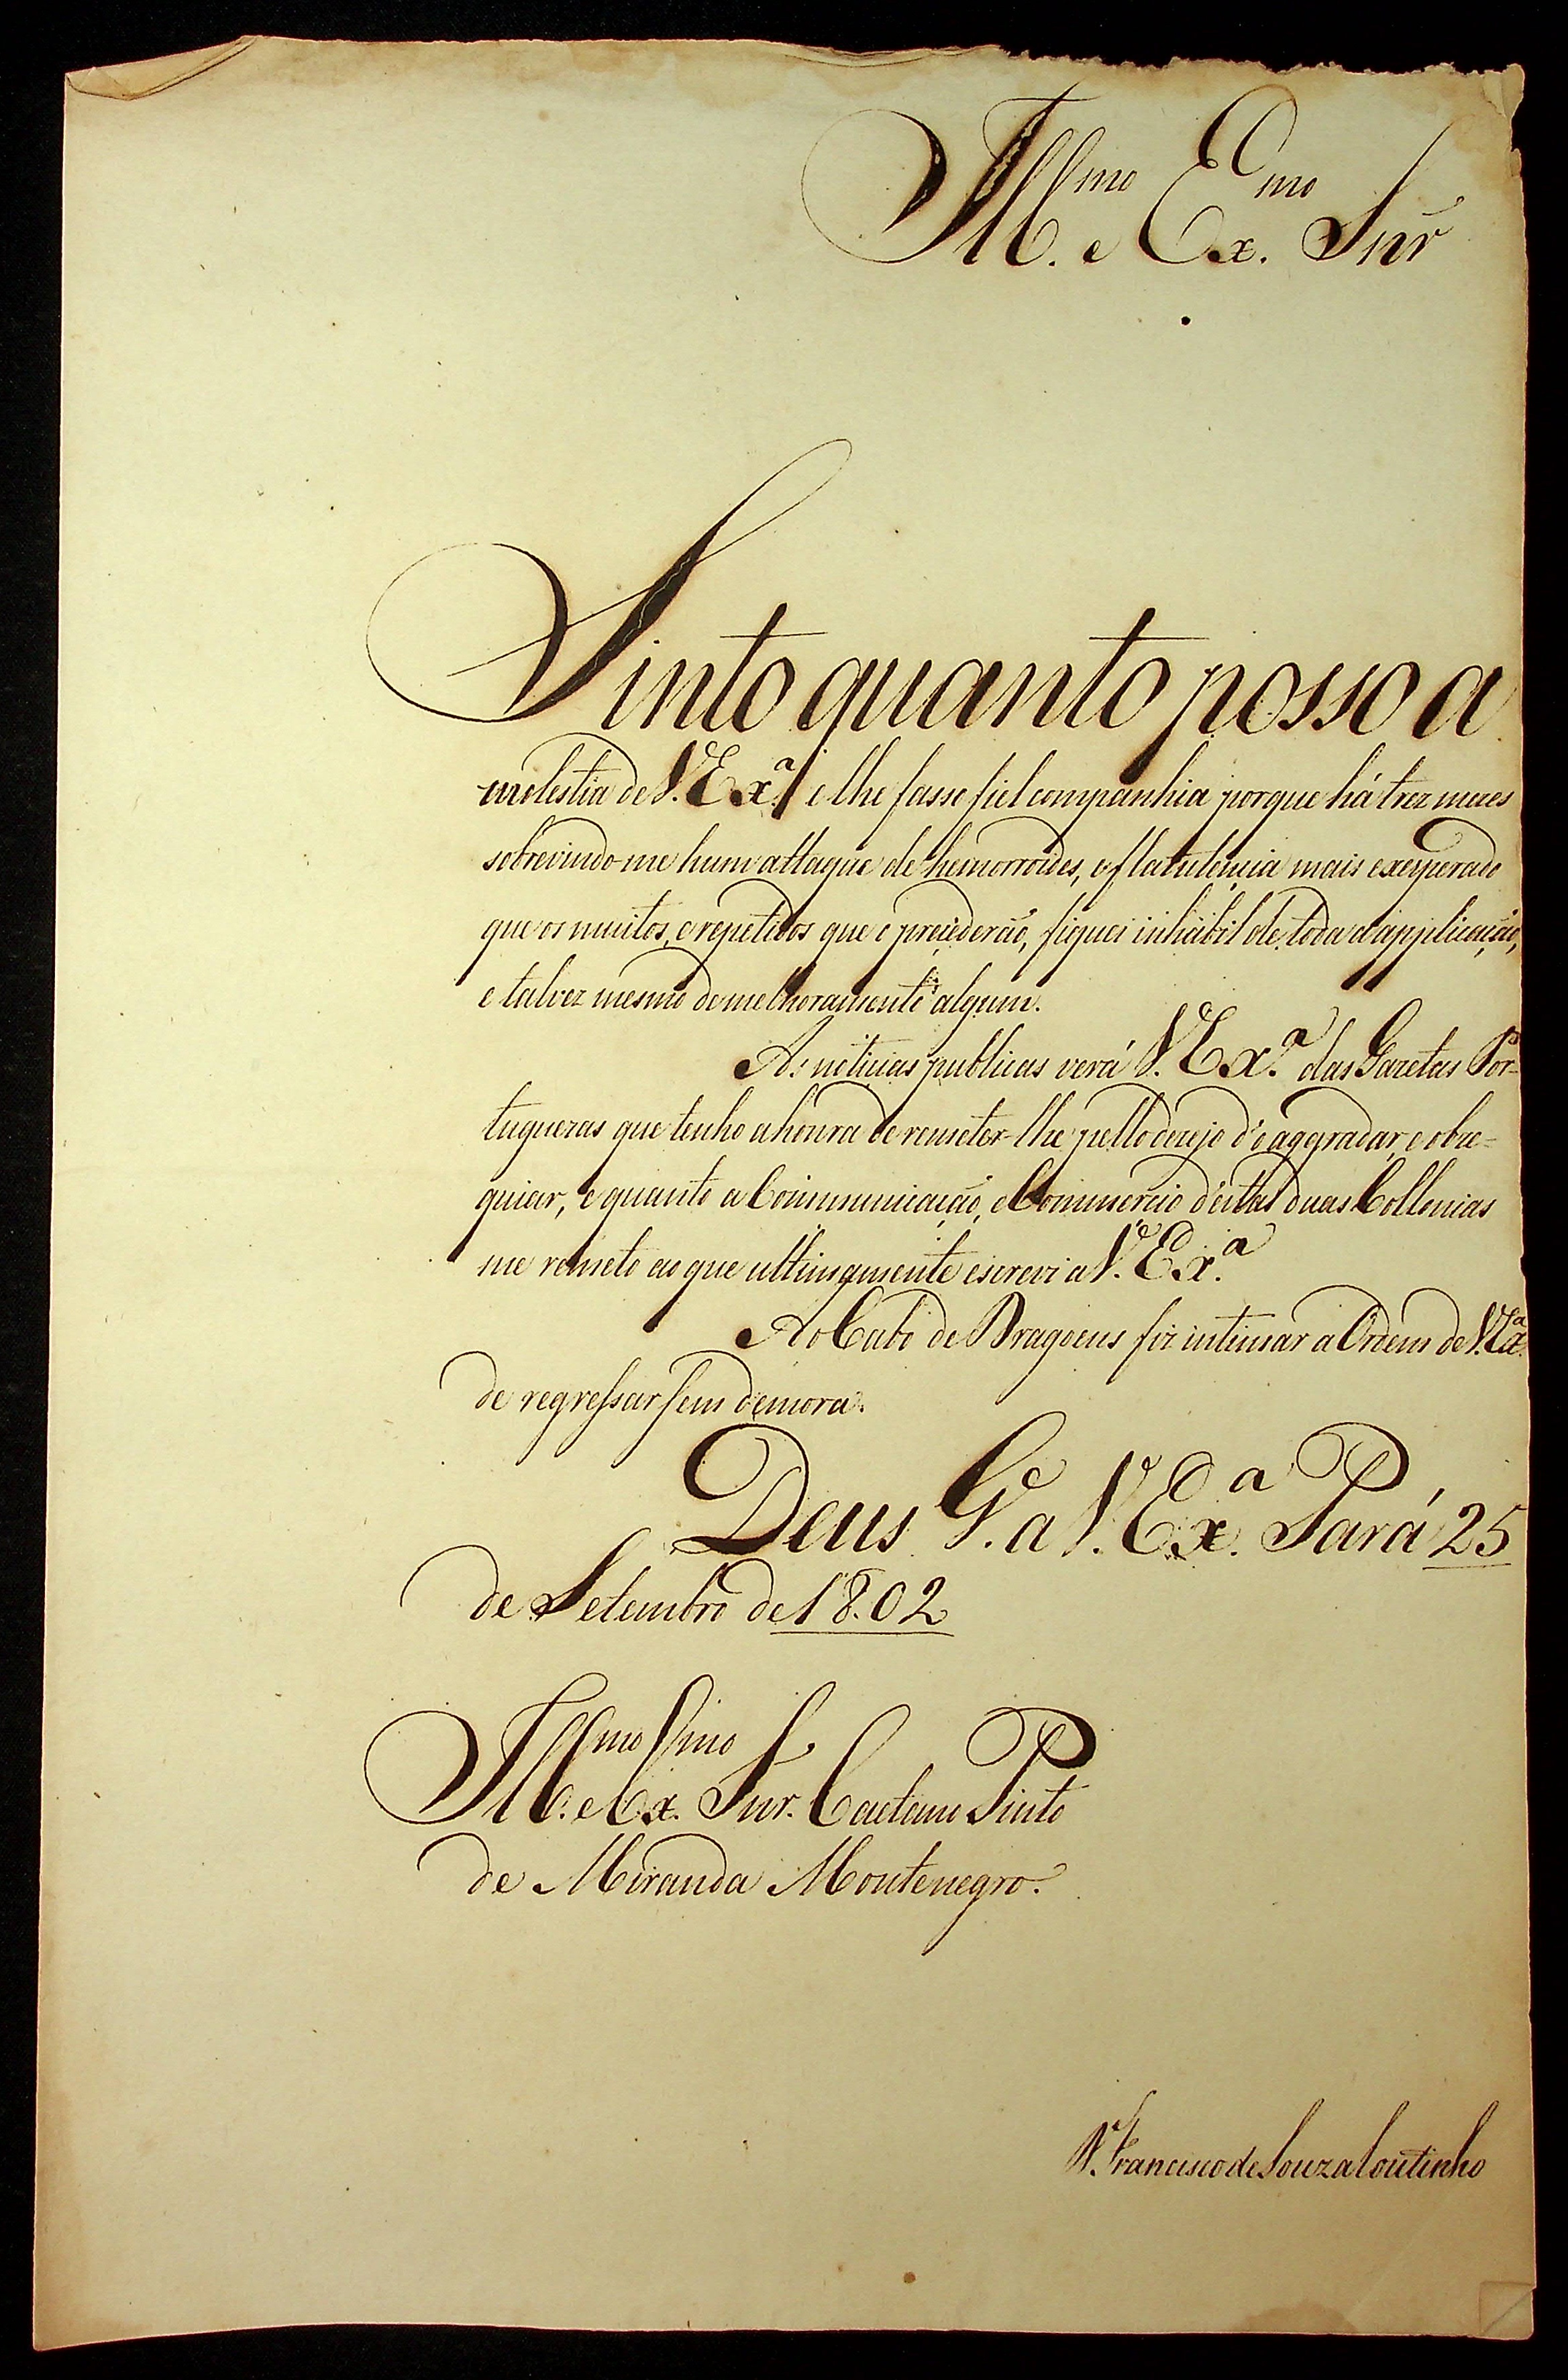 Ill.mo e Ex.mo Snr
Sinto quanto posso a
molestia de V. Ex.a, e lhe fasso fiel companhia porque há trez mezes
sobrevindo-me hum attaque de hemorroides, e flatulencia mais exesperado
que os muitos, e repetidos que o precederão, fiquei inhabil de toda a applicação,
e talvez mesmo de melhoramento algum.
As noticias publicas verá V. Ex.a das Gazetas Por=
tuguezas que tenho a honra de remeter-lhe pello dezejo d'o aggradar, e obze=
quiar, e quanto a Communicação, e Commercio d'estas duas Collonias
me remeto ao que ultimamente escrevi a V. Ex.a
Ao Cabo de Dragoens fiz intimar a Ordem de V. Ex.a
de regressar sem demora.
Deus G.e a V. Ex.a Pará 25
de Setembro de 1802
Ill.mo e Ex.mo Snr. Caetano Pinto
de Miranda Montenegro.
D. Francisco de Souza Coutinho